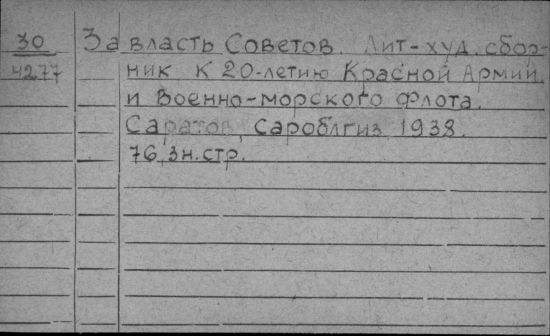 30 За власть Советов. Лит-худ. сбор-
4277 ник к 20-летию Красной Армии
и Военно-морского Флота.
Саратов, Сароблгиз, 1938.
76, 3 н. стр.